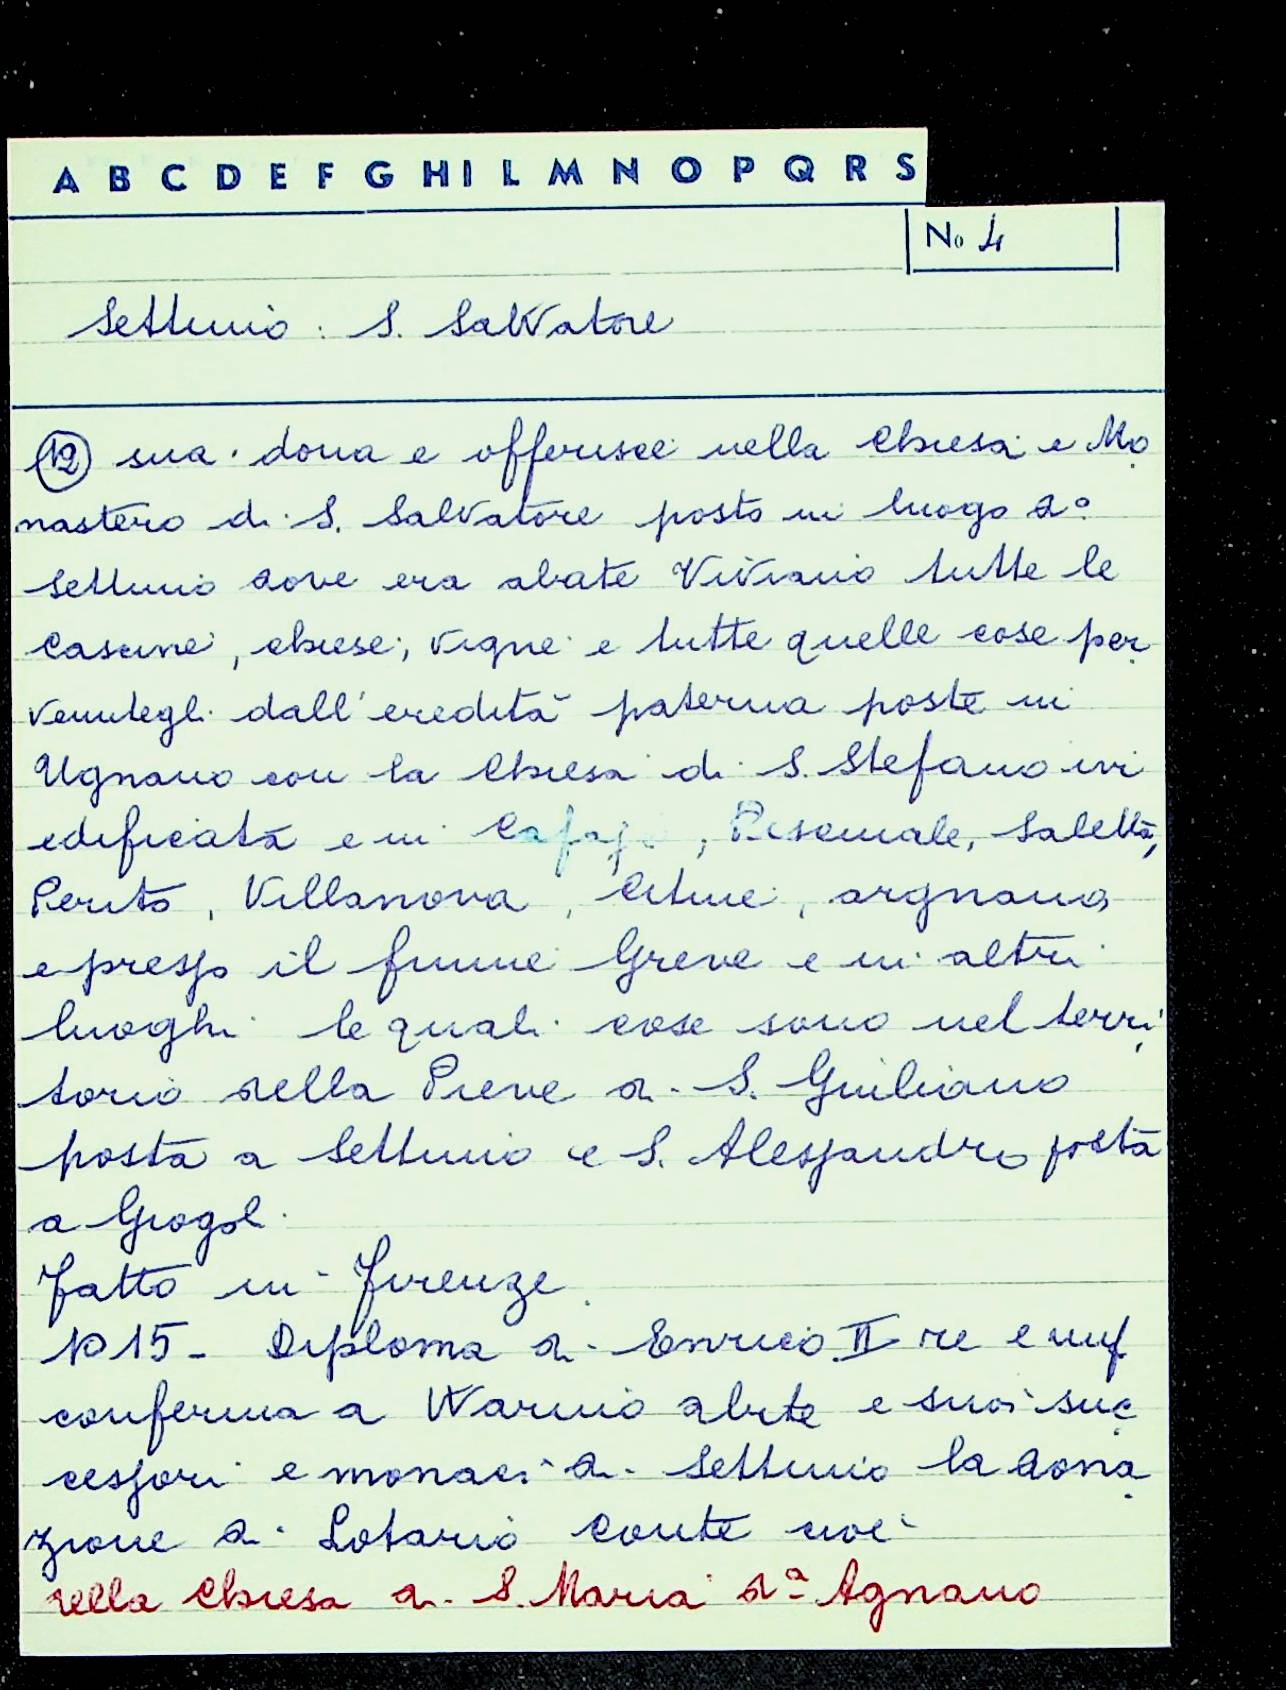 A B C D E F G H I L M N O P Q R S
No 4
Settimo : S. Salvatore
(12) sua dona e offerisce nella Chiesa e Mo
nastero di S. Salvatore posto in luogo dº
Settimo dove era abate Viviano tutte le
Cascine, chiese, vigne e tutte quelle cose per
venutegli dall'eredità paterna poste in
Ugnano con la Chiesa di S. Stefano ivi
edificata e in Cafaj , Piscinale, Saletta,
Perito, Villanova, Citine, argnano
e presso il fiume Greve e in altri
luoghi le quali cose sono nel terri
torio della Pieve di S. Giuliano
posta a Settimo e S. Alessandro posta
a Giogoli
Fatto in Firenze
1015 - Diploma di Enrico II re e imp
conferma a Warino abate e suoi suc
cessori e monaci di Settimo la dona
zione di Lotario Conte cioè
della Chiesa di S. Maria dª Agnano